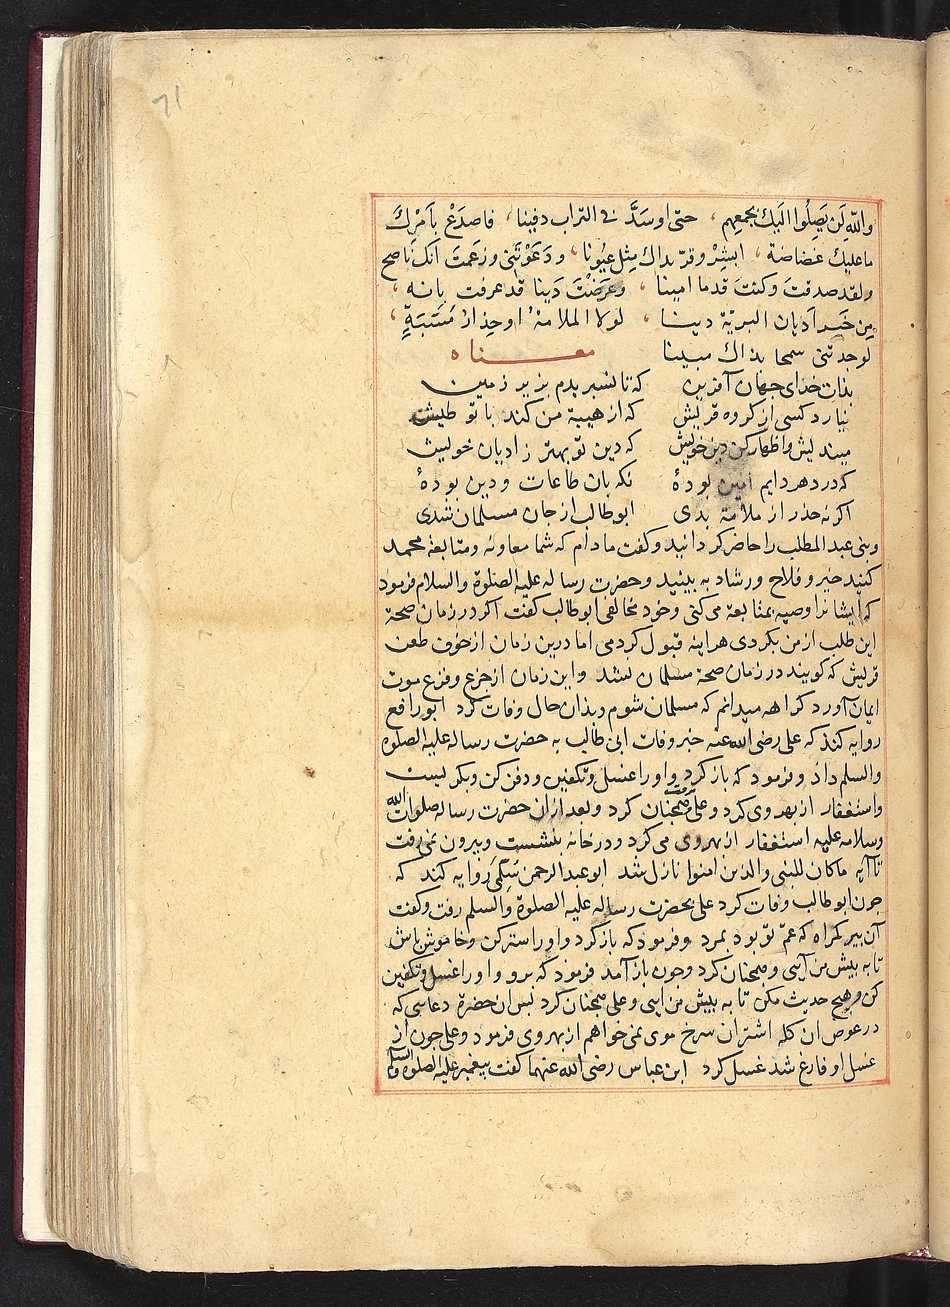 ٦١
والله لَن يَصِلُوا اليك بجمعهم ، حتى اوسَدَّ فى التراب دفينا ، فاصدَعْ بامرِكَ
ما عليك غضاضة ، ابشِرْ وقرّ بذاك مِثل عيُونا ، ودَعَوْتَنى وزعَمتَ انك ناصح
ولقد صدقتَ وكنتَ قدما امينا ، وعَرَضْتَ دَينا قد عرفت بانه ،
مِن خَيرِ اَديان البريّة دينا ، لولا الملامة او حِذارُ مَسَبَّةٍ ،
لوجدتنى سمحا بذاك مبينا معناه
بذات خداى جهان آفرين كه تا نسپردم بزير زمين
نيارد كسى از كروه قريش كه از هيبة من كند با تو طيش
مينديش و اظهار كن دين خويش كه دين تو بهتر ز اديان خويش
كه در دهر دايم امين بودهٔ نكه بان طاعات و دين بودهٔ
اكر نه حذر از ملامة بدى ابوطالب از جان مسلمان شدى
وبنى عبد المطلب را حاضر كردانيد وكفت مادام كه شما معاونة ومتابعة محمد
كنيد خير و فلاح ورشاد به بينيد وحضرت رساله عليه الصلوة والسلام فرمود
كه ايشانرا وصيه بمتابعة مى كنى وخود مخالفى ابوطالب كفت اكر در زمان صحة
اين طلب از من بكردى هراينه قبول كردمى اما درين زمان از خوف طعن
قريش كه كويند در زمان صحة مسلمان نشد واين زمان از جزع و فزع موت
ايمان آورد كراهه ميدانم كه مسلمان شوم وبدان حال وفات كرد ابورافع
روايه كند كه على رضى الله عنه خبر وفات ابى طالب به حضرت رساله عليه الصلوة
والسلم داد وفرمود كه باز كرد واو را غسل وتكفين ودفن كن وبكريست
واستغفار از بهر وى كرد وعلى همچنان كرد وبعد ازان حضرت رساله صلوات الله
وسلامه عليه استغفار از بهر وى مى كرد ودر خانه بنشست وبيرون نمى رفت
تا آيه ماكان للنبى والذين امنوا نازل شد ابوعبد الرحمن سلمى روايه كند كه
چون ابوطالب وفات كرد على بحضرت رساله عليه الصلوة والسلم رفت وكفت
آن پير كمراه كه عم تو بود بمرد وفرمود كه باز كرد واو را ستر كن وخاموش باش
تا به پيش من آيى وهمچنان كرد وچون باز آمد فرمود كه برو واو را غسل وتكفين
كن وهيچ حديث مكن تا به پيش من ايى وعلى همچنان كرد پس ان حضرة دعاى كه
در عوض ان كله اشتران سرخ موى نمى خواهم از بهر وى فرمود وعلى چون از
غسل او فارغ شد غسل كرد ابن عباس رضى الله عنهما كفت پيغمبر عليه الصلوة والسلم